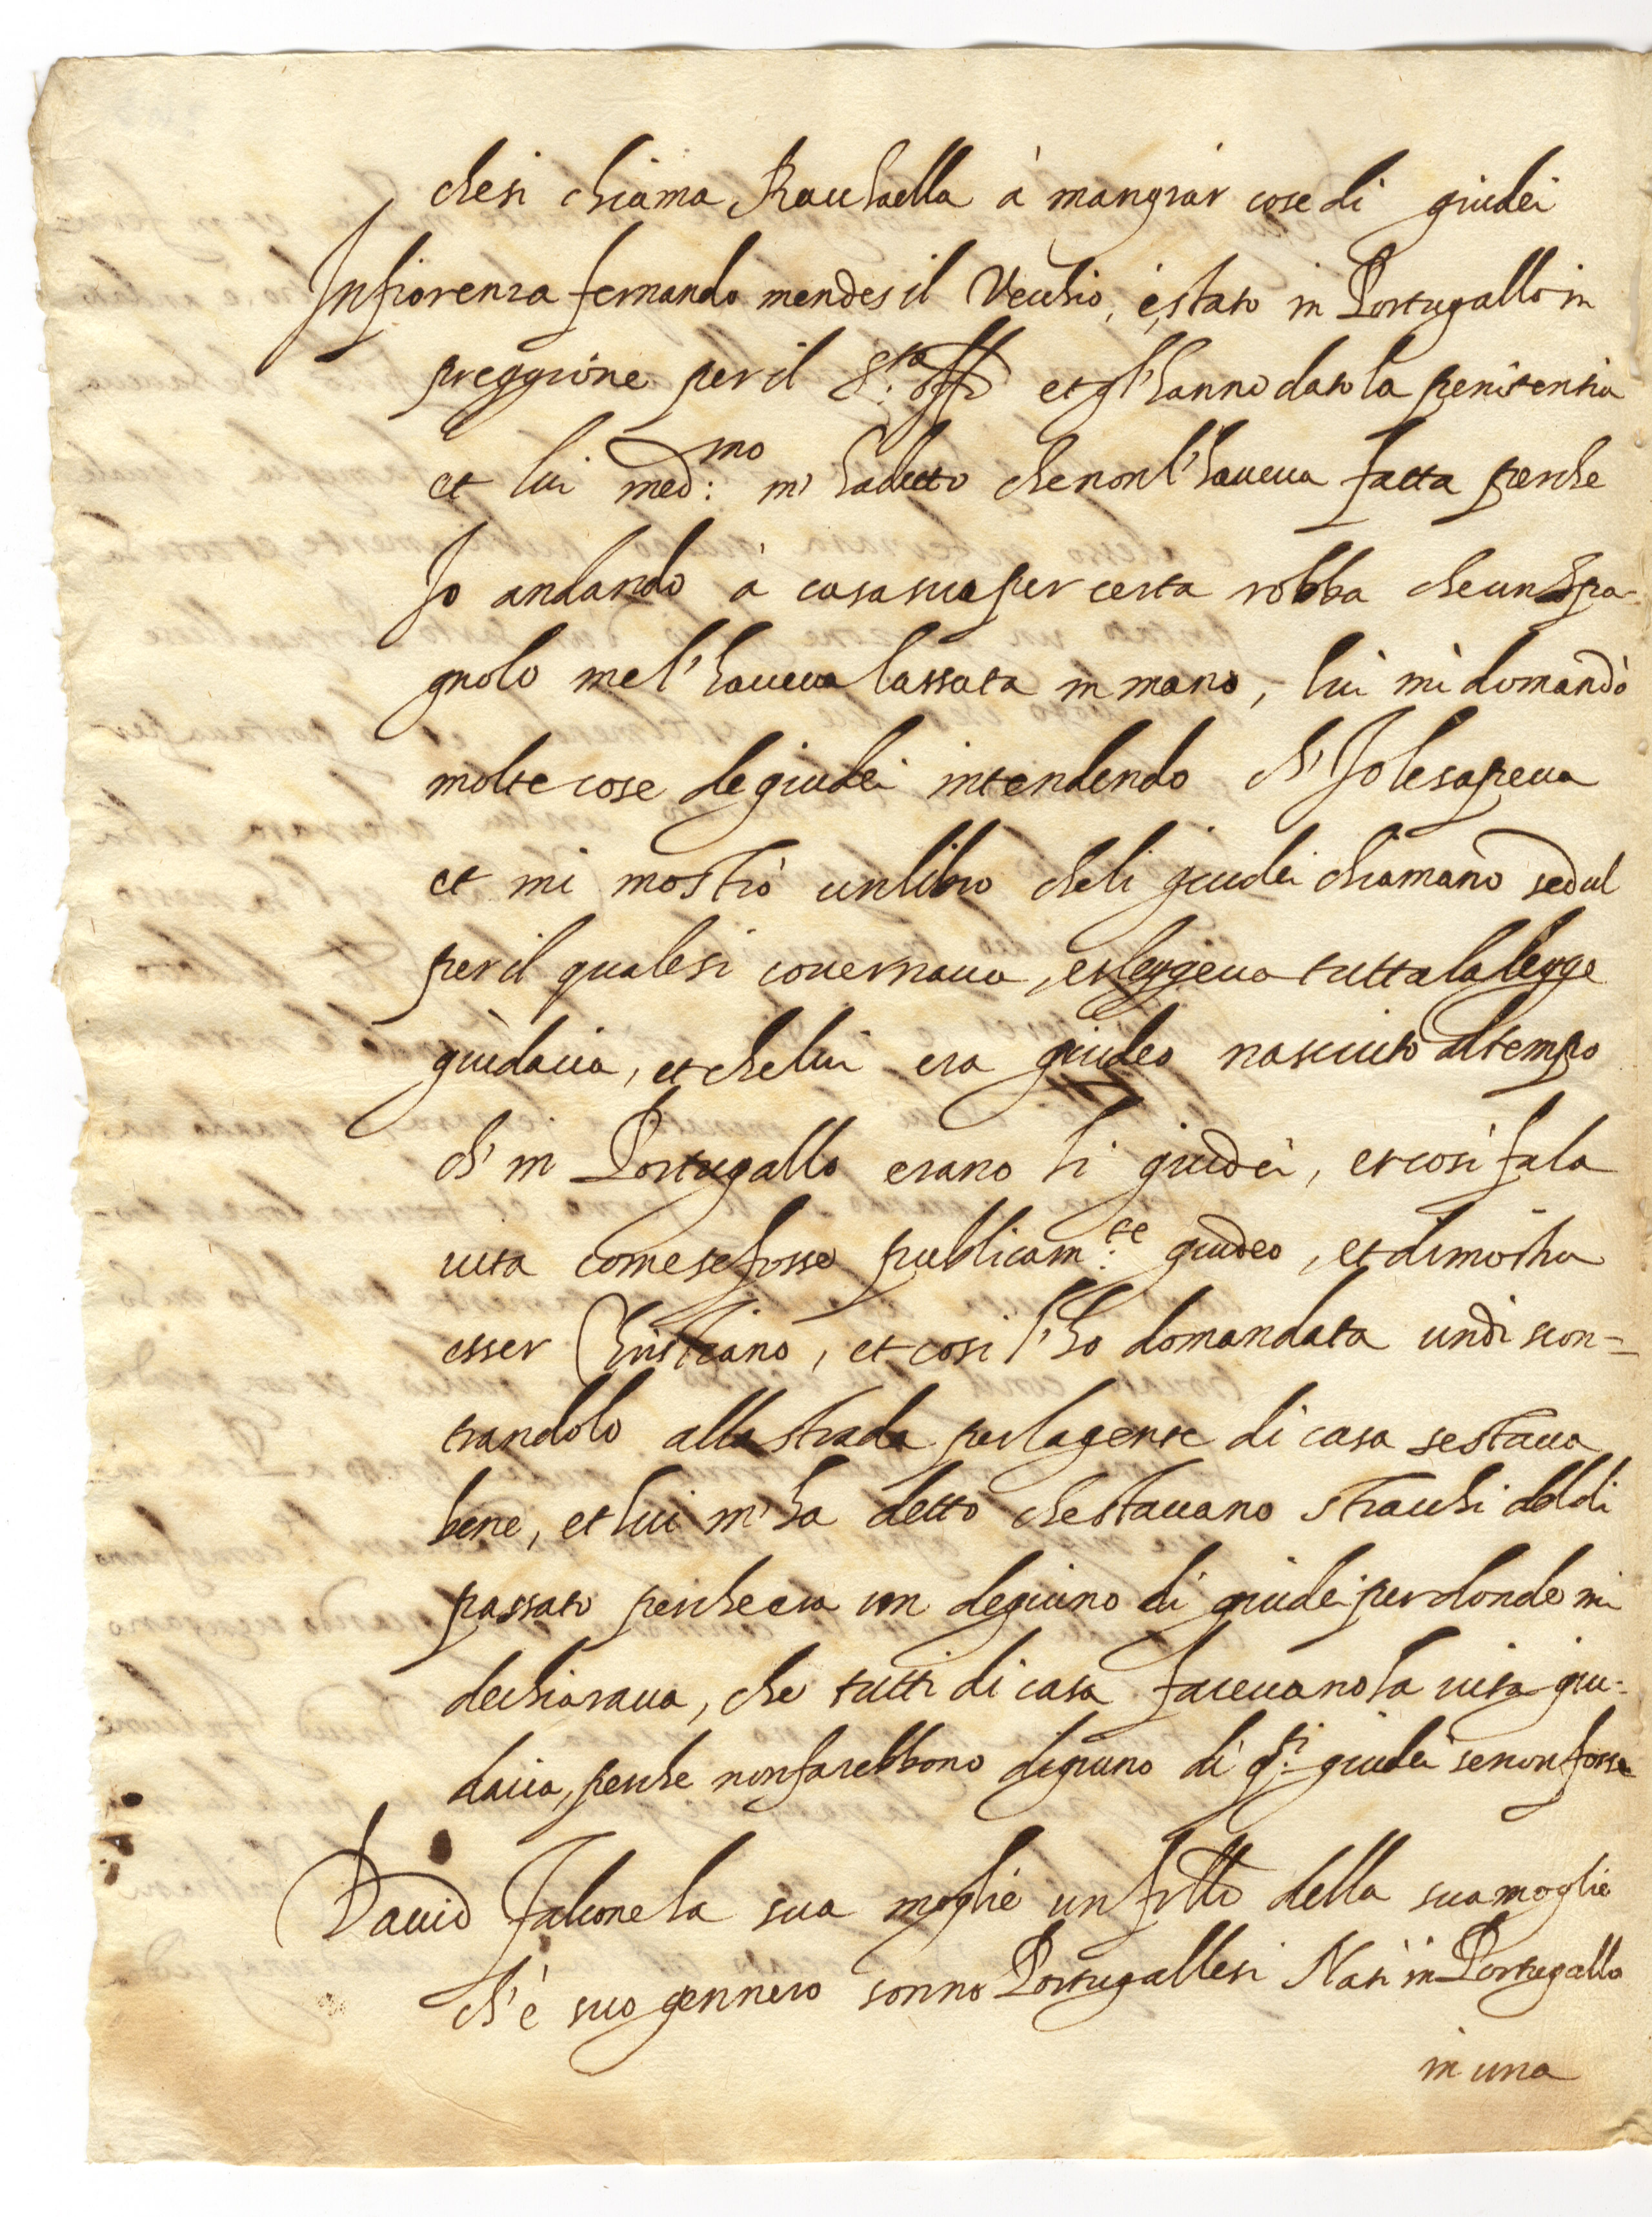 chesi chiama Rauhaella à mangiar cose di giudei
In fiorenza fernando mendes il Vecchio, è stato in Portugallo in
preggione per il S.to offo et gl'hanno dato la penitentia
et lui med:mo m'ha ditto che non l'haueua fatta perche
Io andando à casa sua per certa robba che un spa-
gnolo me l'haueua lassata in mano, lui mi domandò
molte cose de giudei intendendo ch'Io le sapeua
et mi mostrò un libro che li giudei chiamano sedul
per il quale si couernaua, et leggeua tutta la legge
giudaica, et che lui era giudeo nasciuto al tempo
ch'in Portugallo erano li giudei, et cosi fa la
uita come se fosse publicam:te giudeo, et dimostra
esser Christiano, et cosi l'ho domandata un di scon=
trandolo alla strada per la gente di casa se staua
bene, et lui m'ha detto che stauano stracchi del di
passato perche era un degiuno di giudei per donde mi
dechiaraua, che tutti di casa faceuano la uita giu=
daica, perche non farebbono digiuno di q.sti giudei se non fosse
Dauid Falcone la sua moglie un frello della sua moglie
ch'è suo gennero sonno Portugallesi Nati in Portugallo
in una